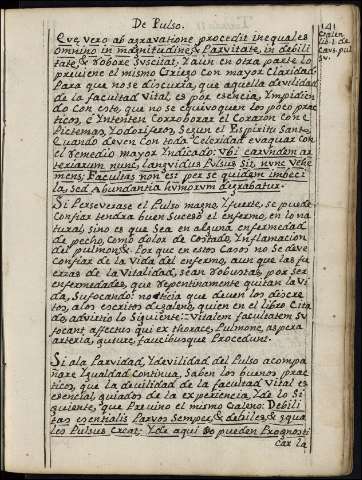 De Pulso.
141
Galen.
lib. 1. de
Caus. pul
su.
Que vero ab aggravatione procedit inequales
omnino in magnitudine, & Parvitate, in debili
tate, & robore suscitat, Y aun en otra parte lo
previene el mismo Griego con mayor Claridad:
Para que no se discurra, que aquella devilidad
de la facultad Vital, es por esencia, Ympidien
do con esto, que no se equivoquen los poco prac
ticos, e Ynteniten Corroborar el Corazon con E
Pictemas, Y odoriferos, Segun el Espiritu Santo,
Quando deven con toda Celeridad evaquar con
el remedio mayor Indicado: Ubi earundem ar
teriarum nunc languidus Pulsus Sit, nunc Vehe
mens; Facultas non est per se quidem imbeci
la, Sed abundantia humorum degrabatur.
Si Perseverase el Pulso magno, Y fuerte, se puede
Confiar tendra buen Suceso el enfermo, en lo na
tural, sino es que Sea en alguna enfermedad
de pecho, como dolor de Costado, Inflamacion
del pulmon, &. Por que en estos Casos no Se deve
Confiar de la Vida del enfermo, aun que las fu
erzas de la Vitalidad, sean robustas, por ser
enfermedades, que repentinamente quitan la Vi
da, Sufocando: noticia que deven los discre
tos, a los escritos de galeno, quien en el libro Cita
do, advirtio lo Siguiente: Vitalem facultatem Su
focant affectus qui ex thorace, Pulmone, aspera
arteria, guture, faucibusque Procedunt.
Si a la Parvidad, Y devilidad del Pulso acompa
ñare Ygualdad Continua, Saben los buenos prac
ticos, que la devilidad de la facultad Vital es
esencial, guiados de la experiencia, Y de lo Si
guiente, que Previno el mismo Galeno: Debili
tas esentialis Parvos Semper, & debiles, & equa
les Pulsus Creat; Y de aqui Pueden Prognosti
car la